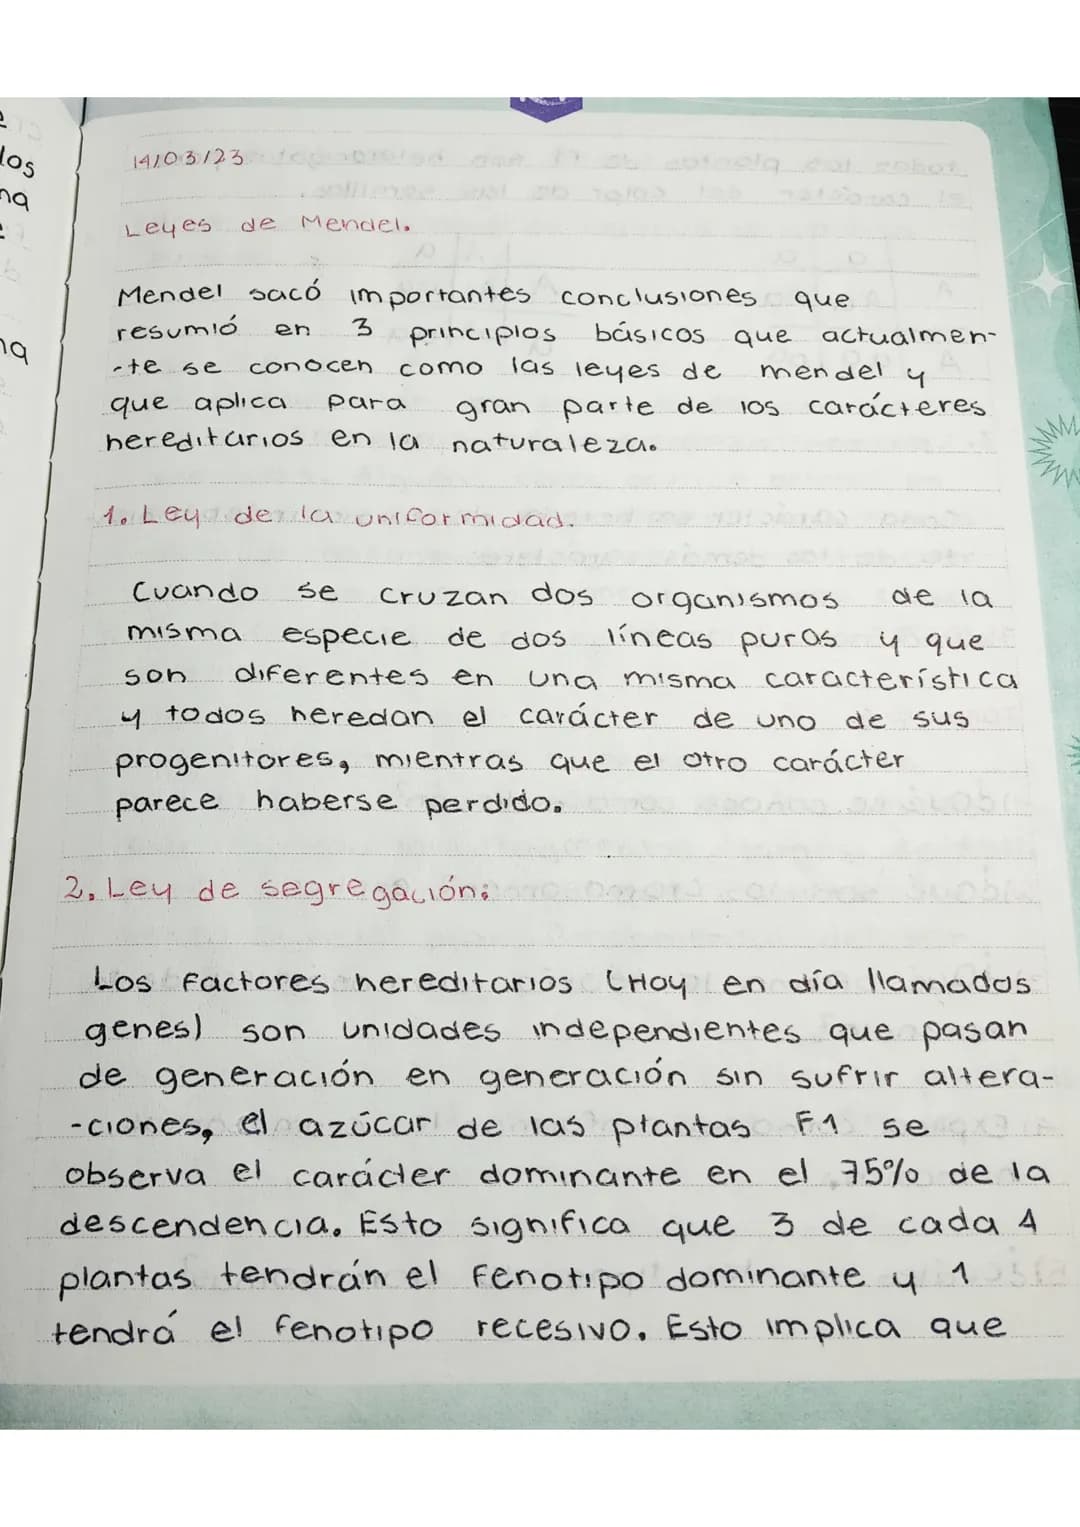 los
na
14/03/23
Leyes de Mendel.
Mendel sacó importantes conclusiones que
resumió en 3 principios básicos que actualmen-
-te se conocen como las leyes de mendel y
que aplica para gran parte de los carácteres
hereditarios en la naturaleza.
1. Ley de la uniformidad.
Cuando se cruzan dos organismos de la
misma especie de dos líneas puras y que
son diferentes en una misma característica
y todos heredan el carácter de uno de sus
progenitores, mientras que el otro carácter
parece haberse perdido.
2. Ley de segregación:
Los factores hereditarios (Hoy en día llamados
genes) son unidades independientes que pasan
de generación en generación sin sufrir altera-
-ciones, el azúcar de las plantas F1 se
observa el carácter dominante en el 75% de la
descendencia. Esto significa que 3 de cada 4
plantas tendrán el fenotipo dominante y 1
tendrá el fenotipo recesivo. Esto implica que